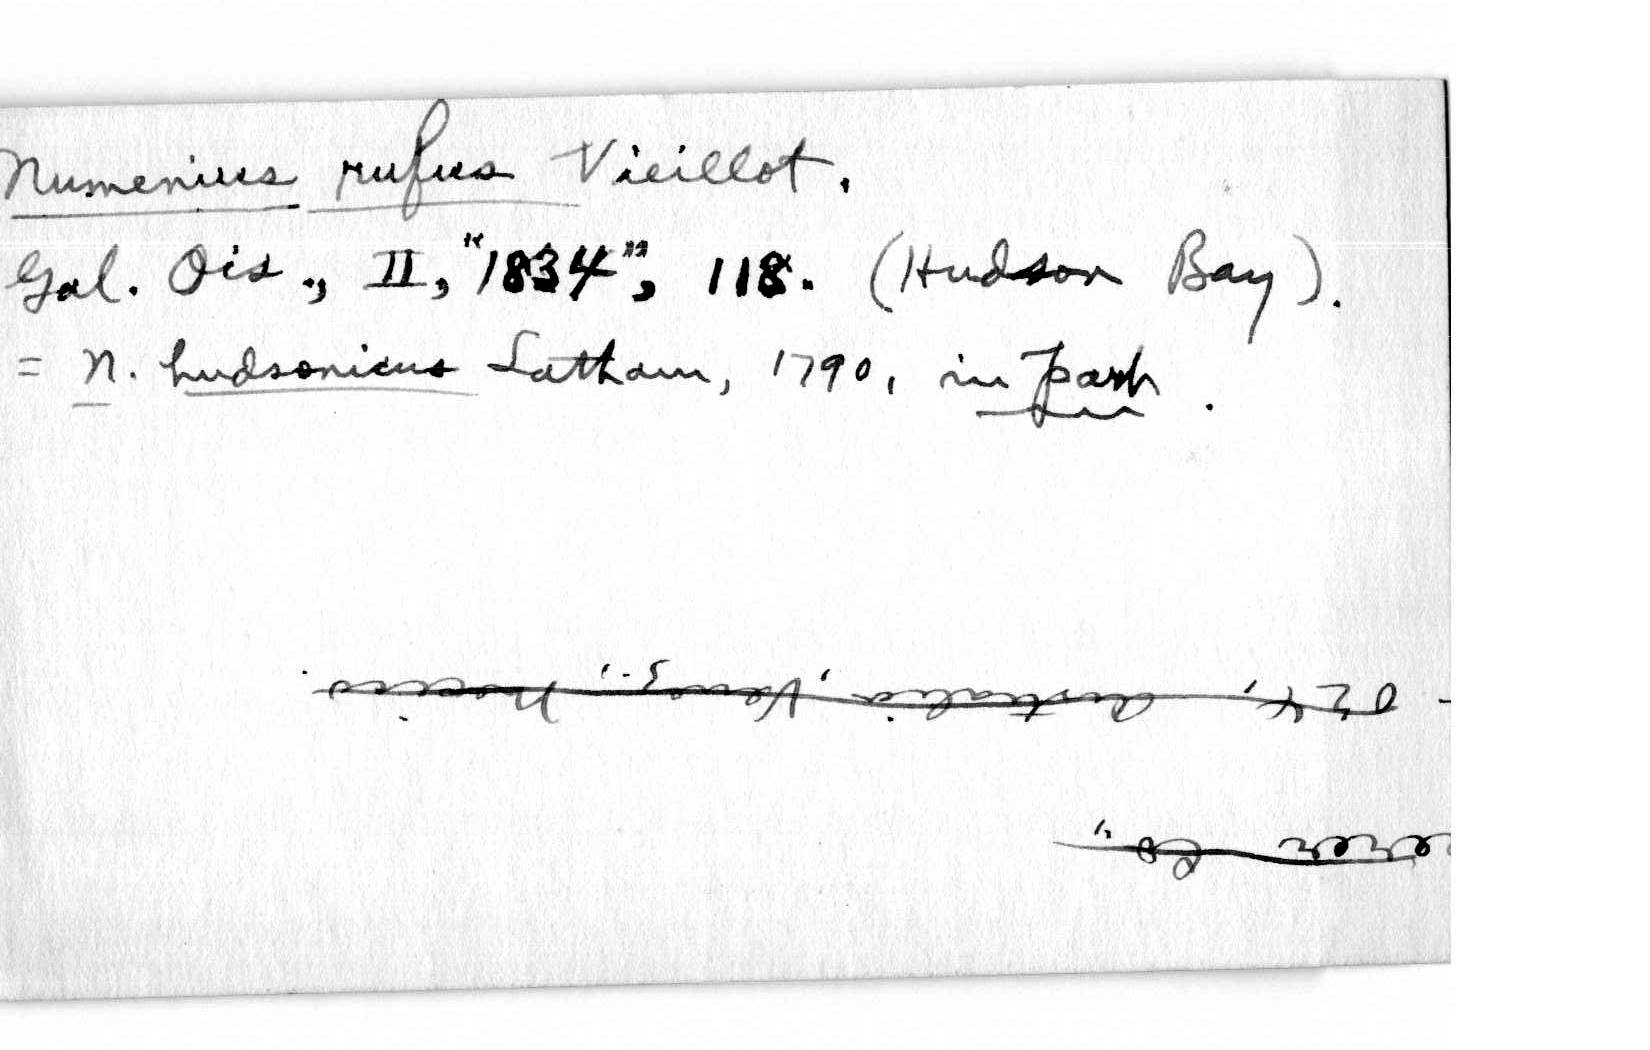 Numenius rufus Vieillot.
Gal. Ois., II, "1834", 118. (Hudson Bay).
= N. hudsonicus Latham, 1790, in part.